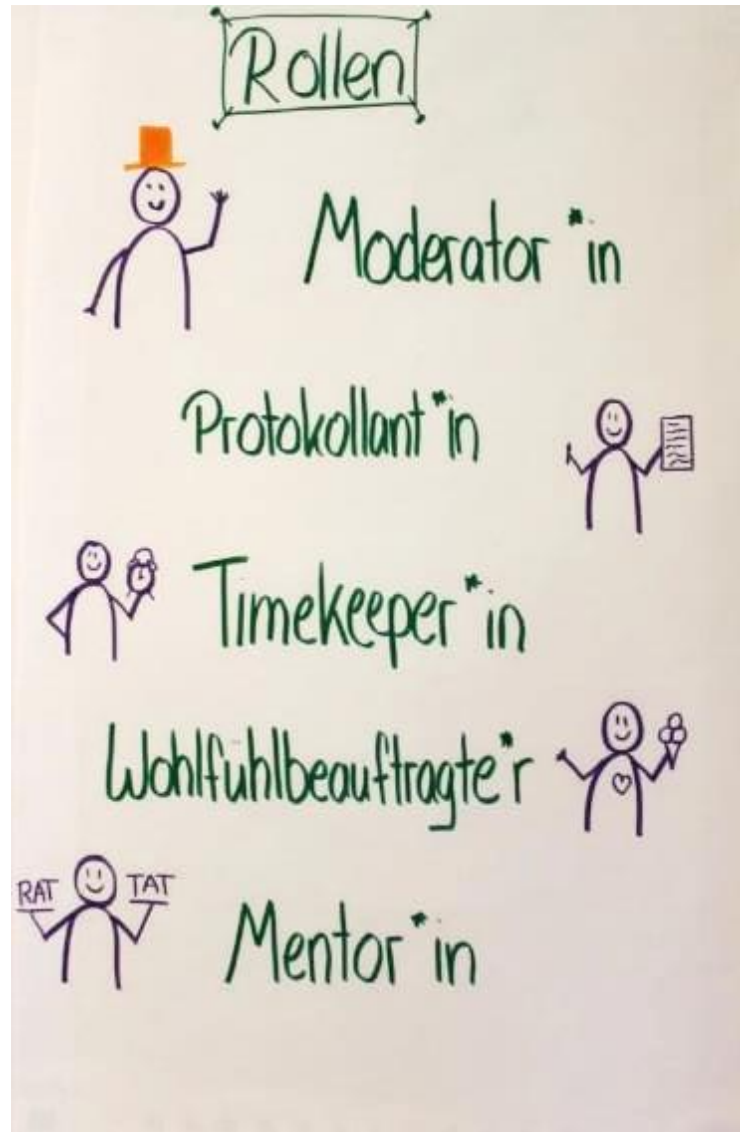 Rollen
Moderator*in
Protokollant*in
Timekeeper*in
Wohlfühlbeauftragte*r
RAT TAT
Mentor*in